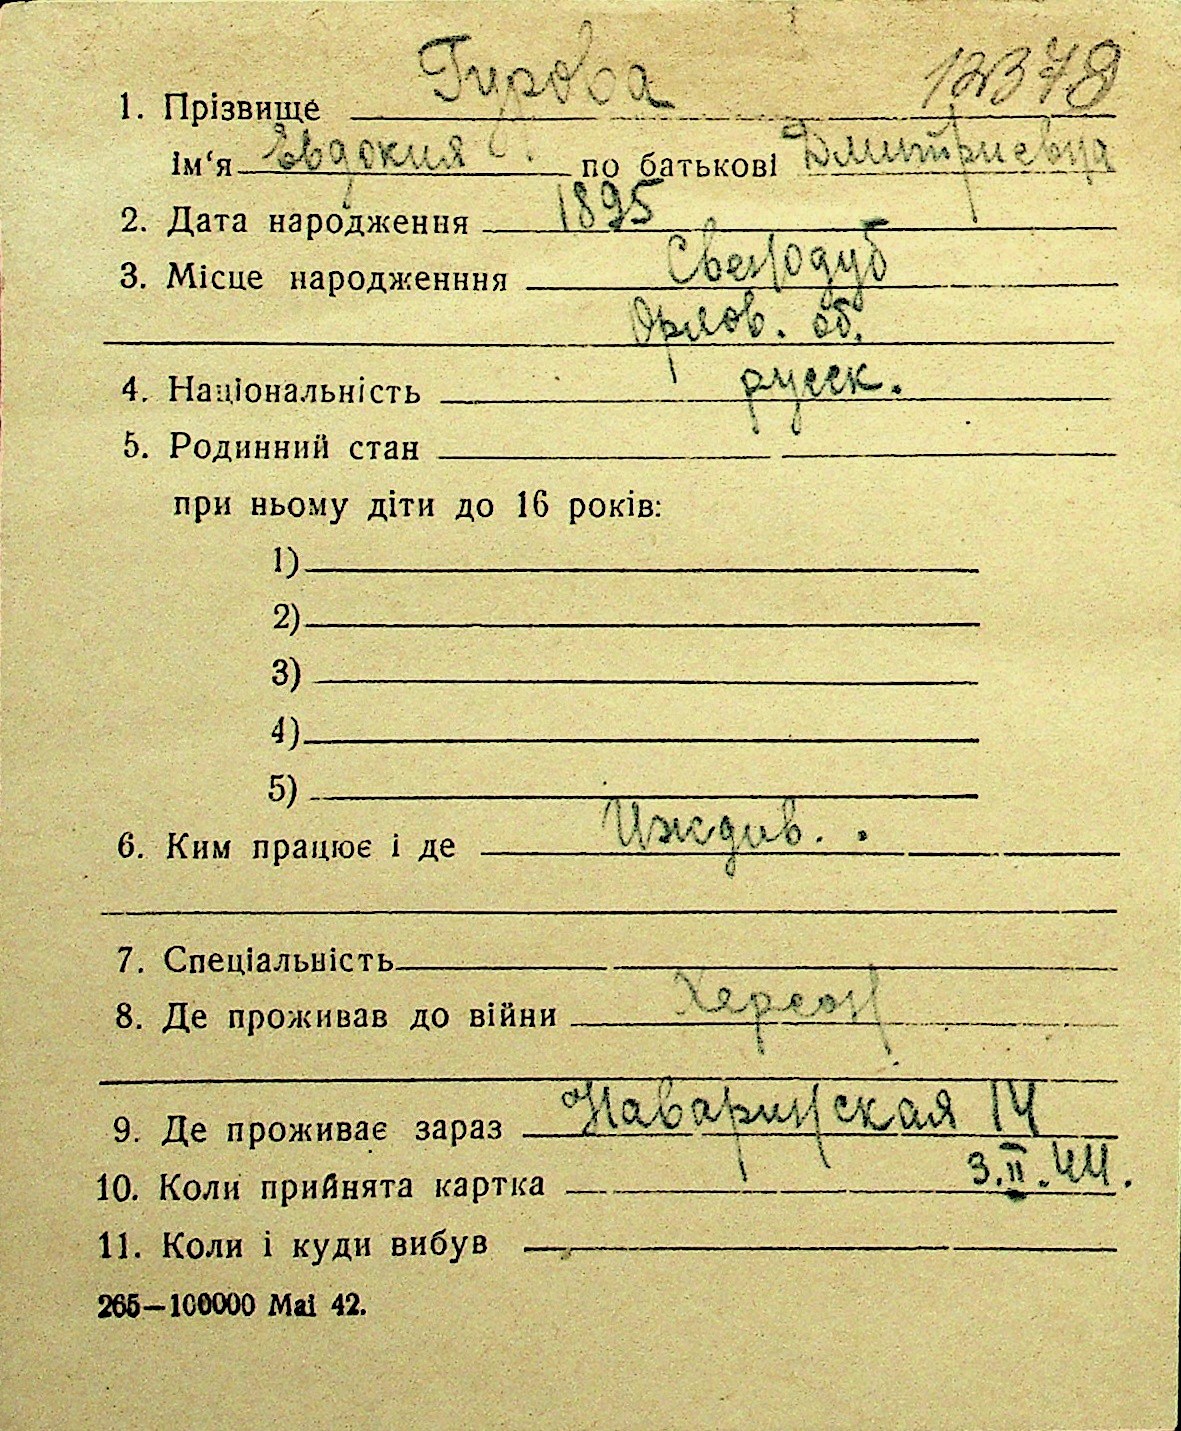 Гурова 12378
1. Прізвище
Ім‘я Евдокия по батькові Дмитриевна
2. Дата народження 1895
3. Місце народженння
Орлов. об.
4. Національність русск.
5. Родинний стан
при ньому діти до 16 років:
1)
2)
3)
4)
5)
6. Ким працює і де Иждив.
7. Спеціальність
8. Де проживав до війни Херсон
9. Де проживає зараз Наваринская 14
10. Коли прийнята картка 3.II.44.
11. Коли і куди вибув
265—100000 Mai 42.